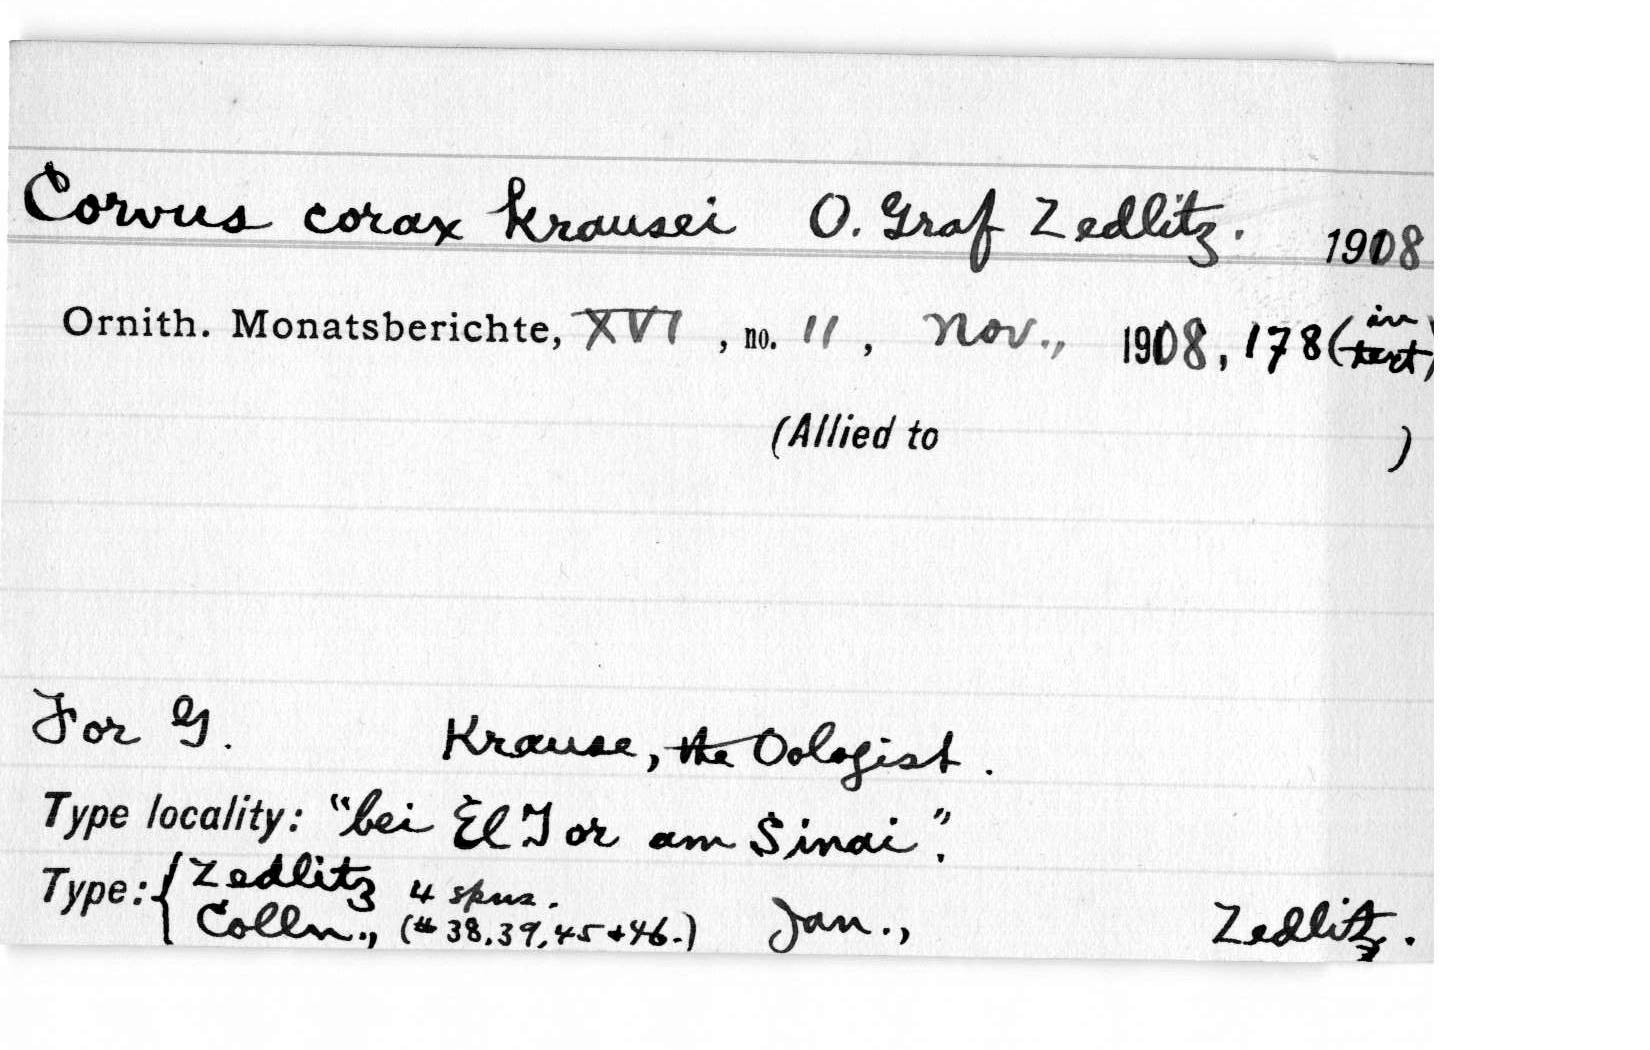 Corvus corax krausei O. Graf Zedlitz. 1908
Ornith. Monatsberichte, XVI, no. 11, Nov., 1908, 178 (in text)
(Allied to )
For G. Krause, the Oologist.
Type locality: "bei El Tor am Sinai".
Type: { Zedlitz 4 spns.
Colln., (# 38, 39, 45 + 46.) Jan., Zedlitz.